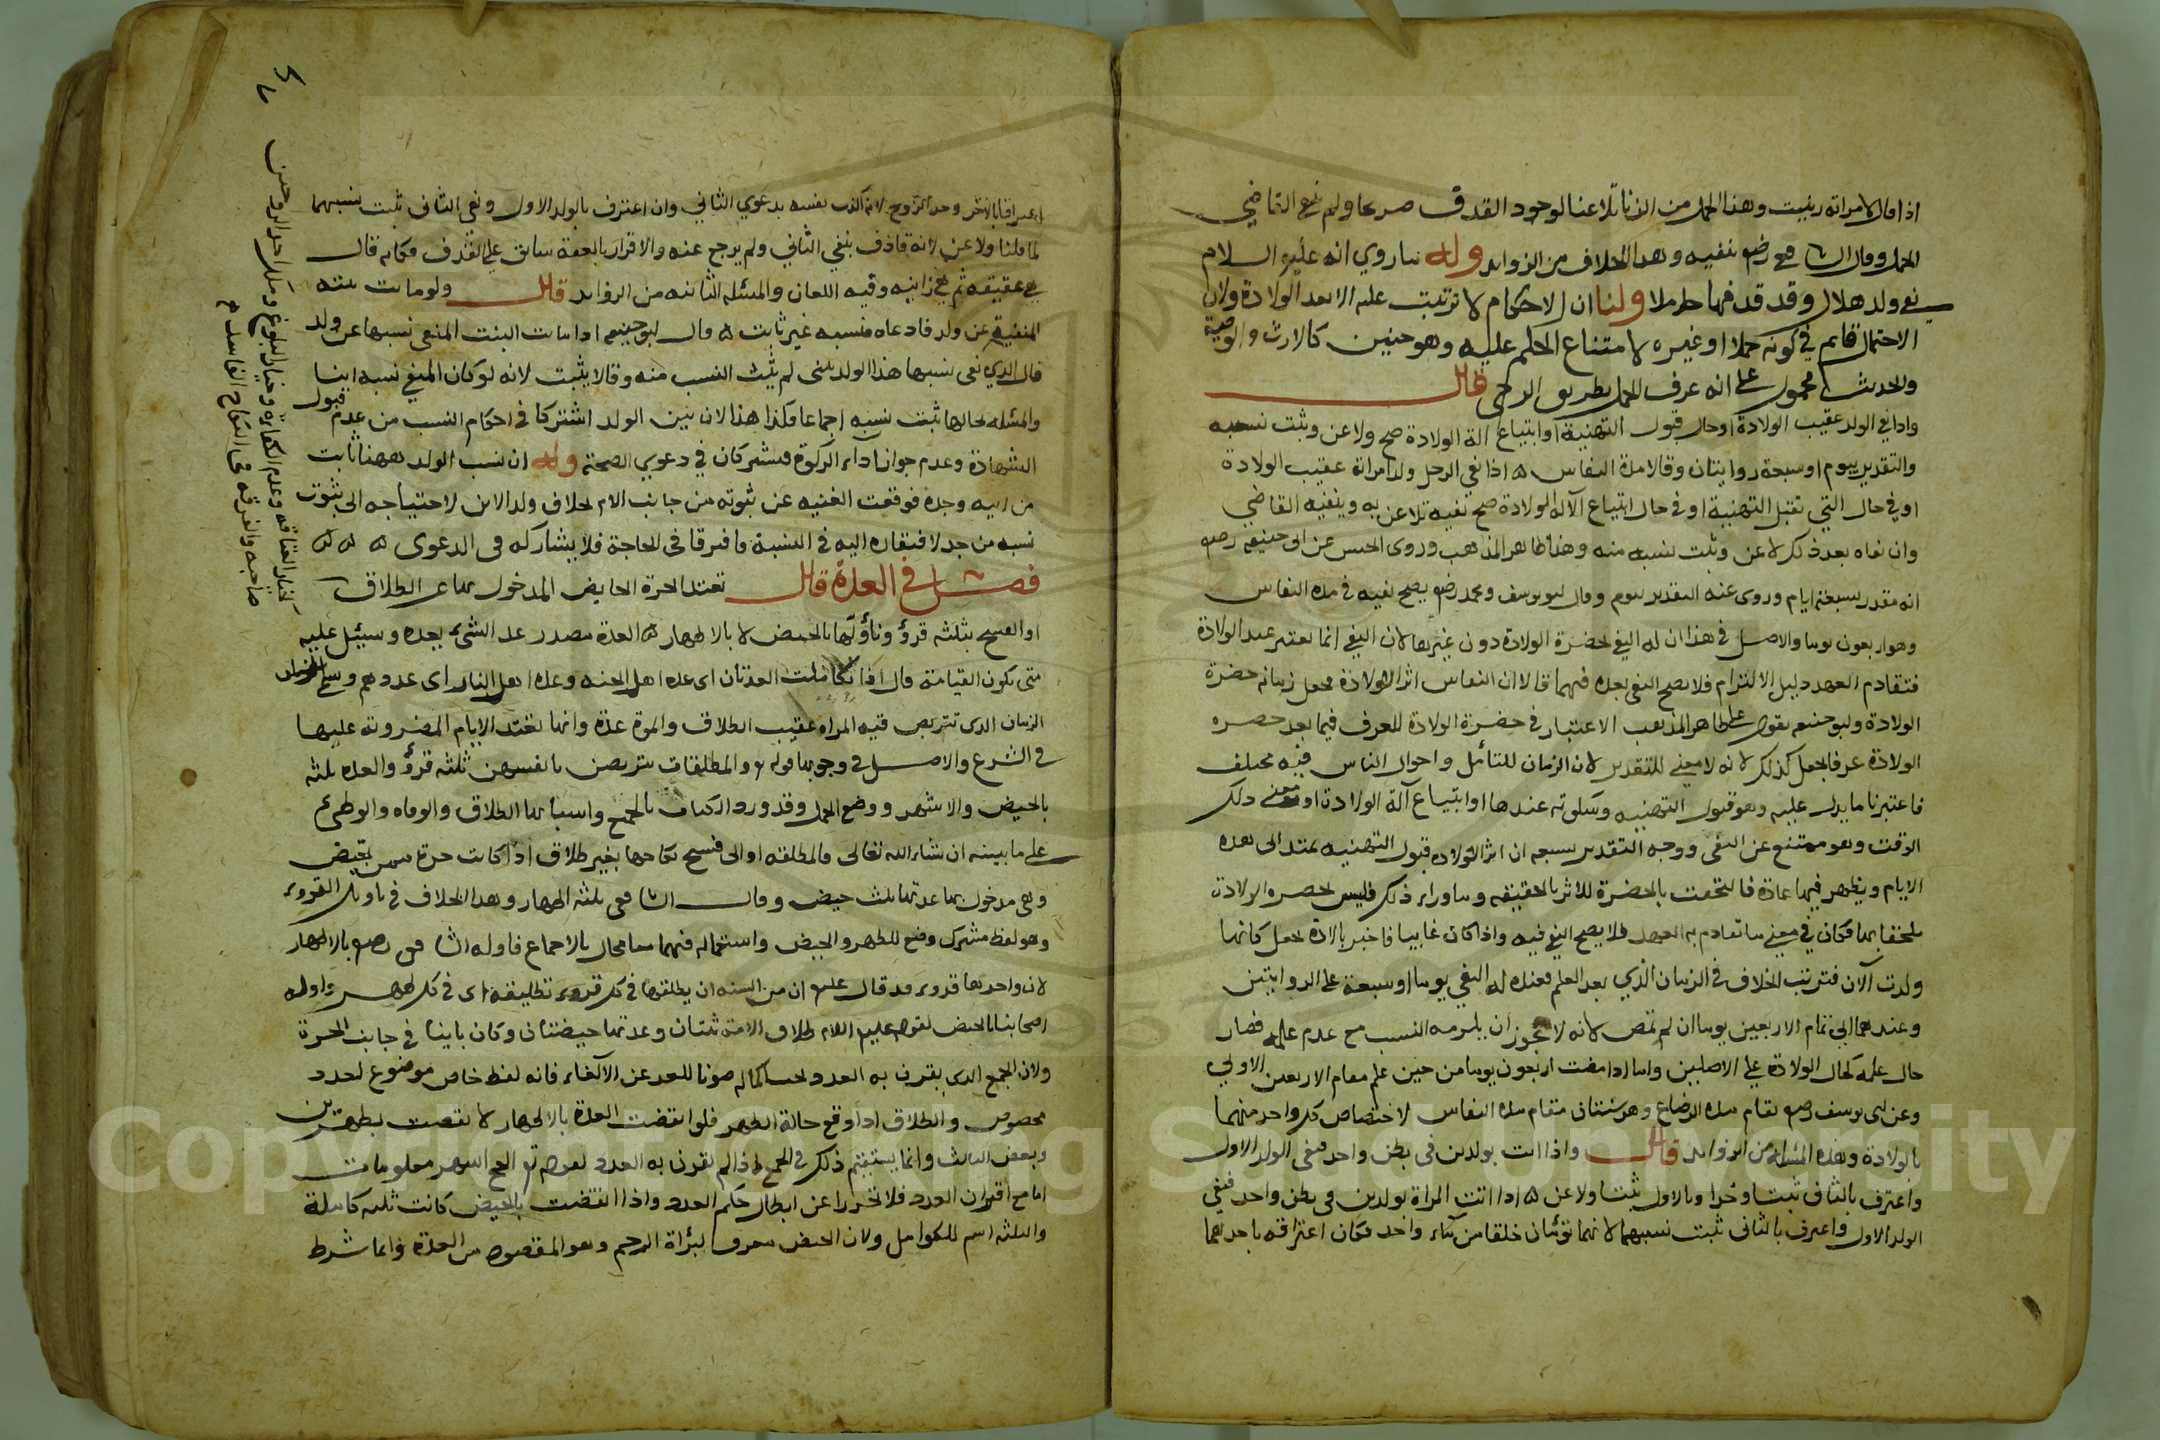 اذا قال لامراته زنيت وهذا الحمل من الزنا تلاعنا لوجود القذف صريحا ولم ينف القاضي
الحمل وقال الشافعي رضه ينفيه وهذا الخلاف من الزوايد وله ما روي انه عليه السلام
نفى ولد هلال وقد قذفها حاملا ولنا ان الاحكام لا ترتب عليه الا بعد الولادة ولان
الاحتمال قايم في كونه حملا او غيره لامتناع الحكم عليه وهو جنين كالارث والوصية
والحديث محمول على انه عرف الحمل بطريق الوحي قال
واذا نفي الولد عقيب الولادة او حال قبول التهنية او ابتياع الة الولادة صح ولاعن وثبت نسبه
والتقدير بيوم او سبعة روايتان وقالا مدة النفاس ه اذا نفى الرجل ولد امراته عقيب الولادة
او في حال التي تقبل التهنية او في حال ابتياع الآلة الولادة صح نفيه تلاعن به وينفيه القاضي
وان نفاه بعد ذلك لاعن وثبت نسبه منه وهذا ظاهر المذهب وروى الحسن عن ابى حنيفه رضه
انه مقدر بسبعة ايام وروى عنه التقدير بيوم وقال ابو يوسف ومحمد رضه يصح نفيه في مدة النفاس
وهو اربعون يوما والاصل في هذا ان له النفي لحضرة الولادة دون غيرها لان النفي انما يعتبر عند الولادة
فتقادم العهد دليل الالتزام فلا يصح النفى بعده فيهما قالا ان النفاس اثر الولادة فجعل زمانه حضرة
الولادة وابو حنيفه يقول على ظاهر المذهب الاعتبار في حضرة الولادة للعرف فيما يعد حضره
الولادة عرفا يجعل كذلك لانه لا معنى للتقدير لان الزمان للتامل واحوال الناس فيه مختلف
فاعتبرنا ما يدل عليه وهو قبول التهنيه وسكوته عندها او ابتياع آلة الولادة او مضى ذلك
الوقت وهو ممتنع عن النفى ووجه التقدير بسبعه ان اثر الولاده قبول التهنيه يمتد الى هذه
الايام ويظهر فيها عادة فالتحقت بالحضرة للاثر بالحقيقه وما وراء ذلك فليس لحضره الولادة
ملحقا بها فكان في معنى ما تقادم به العهد فلا يصح النفي فيه واذا كان غايبا فاخبر بالولادة يجعل كانها
ولدت الآن فترتب الخلاف في الزمان الذي بعد العلم فعنده له النفي يوما او سبعة على الروايتين
وعندهما الى تمام الاربعين يوما ان لم تمض لانه لا يجوز ان يلزمه النسب مع عدم علمه فصار
حال علمه كحال الولادة على الاصلين واما اذا مضت اربعون يوما من حين علم مقام الاربعين الاولى
وعن ابى يوسف رضه تقام مدة الرضاع وهو سنتان مقام مدة النفاس لاختصاص كل واحد منهما
بالولادة وهذه المسئلة من الزوايد قال واذا اتت بولدين فى بطن واحد فنفى الولد الاول
واعترف بالثانى ثبتا وحد او بالاول ثبتا ولاعن ه اذا اتت المراة بولدين فى بطن واحد فنفي
الولد الاول واعترف بالثانى ثبت نسبهما لانهما توءمان خلقا من ماء واحد فكان اعترافه باحدهما
اعترافا بالاخر وحد الزوج لانه اكذب نفسه بدعوي الثاني وان اعترف بالولد الاول ونفى الثانى ثبت نسبهما
لما قلنا ولاعن لانه قاذف بنفي الثاني ولم يرجع عنه والاقرار بالعفة سابق على القذف فكانه قال
هي عفيفه ثم هي زانيه وفيه اللعان والمسئله الثانيه من الزوايد قال ولو ماتت بنته
المنفية عن ولد فادعاه فنسبه غير ثابت ه قال ابو حنيفه اذا ماتت البنت المنفي نسبها عن ولد
قال الذي نفى نسبها هذا الولد بلى لم يثبت النسب منه وقالا يثبت لانه لو كان المنفي نسبه ابنا
والمسئله بحالها ثبت نسبه اجماعا وكذا هذا لان بين الولد اشتركا في احكام النسب من عدم قبول
الشهادة وعدم جواز اداء الزكوة فيشتركان في دعوي الصحة وله ان نسب الولد ههنا ثابت
من ابيه وجده فوقعت الغنيه عن ثبوته من جانب الام بخلاف ولد الابن لاحتياجه الى ثبوت
نسبه من جد لافتقاره اليه في النسبة فافترقا في الحاجة فلا يشاركه فى الدعوى ه ه ه
فصل في العدة قال تعتد الحرة الحايض المدخول بها عن الطلاق
او الفسخ بثلثه قروء وناؤلها بالحيض لا بالاطهار ه العدة مصدر عد الشئ يعده وسئل عليه
متى تكون القيامة قال اذا تكاملت العدتان اى عدة اهل الجنه وعدة اهل النار اى عددهم وسمي
الزمان الذى تتربص فيه المراه عقيب الطلاق والموت عدة وانها تعتد الايام المضروبه عليها
في الشرع والاصل في وجوبها قوله تع والمطلقات يتربصن بانفسهن ثلثه قروء والعده ثلثه
بالحيض والاشهر ووضع الحمل وقد ورد الكتاب بالجميع واسبابها الطلاق والوفاه والوطئ
على ما بينه ان شاء الله تعالى والمطلقه او التى فسخ نكاحها بغير طلاق اذا كانت حرة ممن تحيض
وهى مدخول بها عدتها ثلث حيض وقال الشافعى ثلثه اطهار وهذا الخلاف في تاويل القروء
وهو لفظ مشترك وضع للطهر والحيض واستعماله فيهما معا محال بالاجماع فاوله الشافعى رضه بالاطهار
لان واحدها قروء وقد قال عليه ان من السنه ان يطلقها في كل قروء تطليقه اى في كل طهر واوله
اصحابنا بالحيض لقوله عليه السلام طلاق الامة ثنتان وعدتها حيضتان وكان باينا في جانب الحرة
ولان الجمع الذى يقرن به العدد لحساب كماله صونا للعدد عن الالغاء فانه لفظ خاص موضوع لعدد
مخصوص والطلاق اذا وقع حالة الطهر فلو انقضت العدة بالاطهار لانقضت بطهرين
وبعض الثالث وانما يستقيم ذلك في الجمع اذا لم يقرن به العدد لقوله تع الحج اشهر معلومات
اما مع اقتران العدد فلا تحررا عن ابطال حكم العدد واذا انقضت بالحيض كانت ثلثه كاملة
والثلثه اسم للكوامل ولان الحيض معرف لبراة الرحم وهو المقصود من العدة وانما شرط